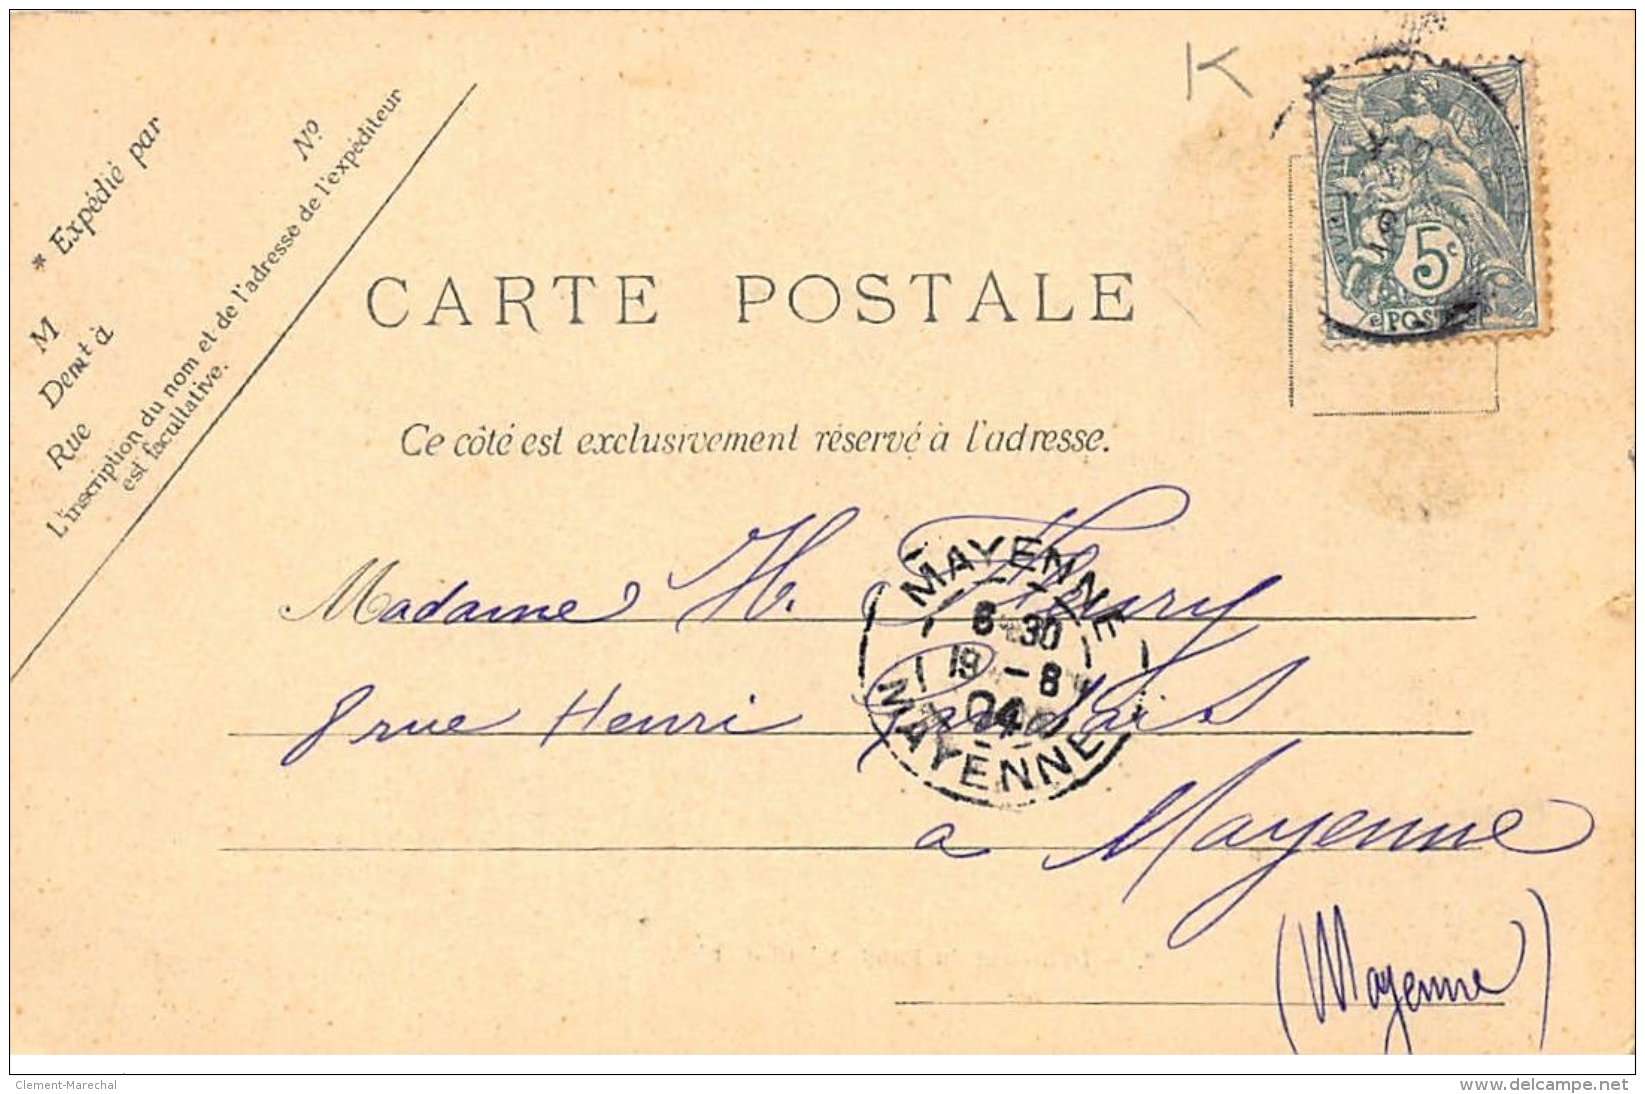 K
* Expédié par
M
Demt à
Rue
No.
L'inscription du nom et de l'adresse de l'expéditeur
est facultative.
CARTE POSTALE
Ce côté est exclusivement réservé à l'adresse.
5c
POSTES
Madame H. Fleury
8 rue Henri
à Mayenne
(Mayenne)
MAYENNE
6 30
19 - 8
04
MAYENNE
Clement-Marechal
www.delcampe.net